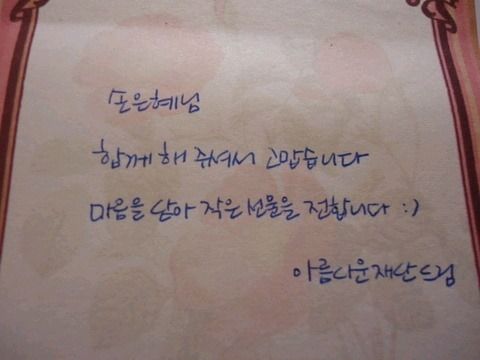 손은혜님
함께 해 주셔서 고맙습니다
마음을 담아 작은 선물을 전합니다 :)
아름다운재단드림